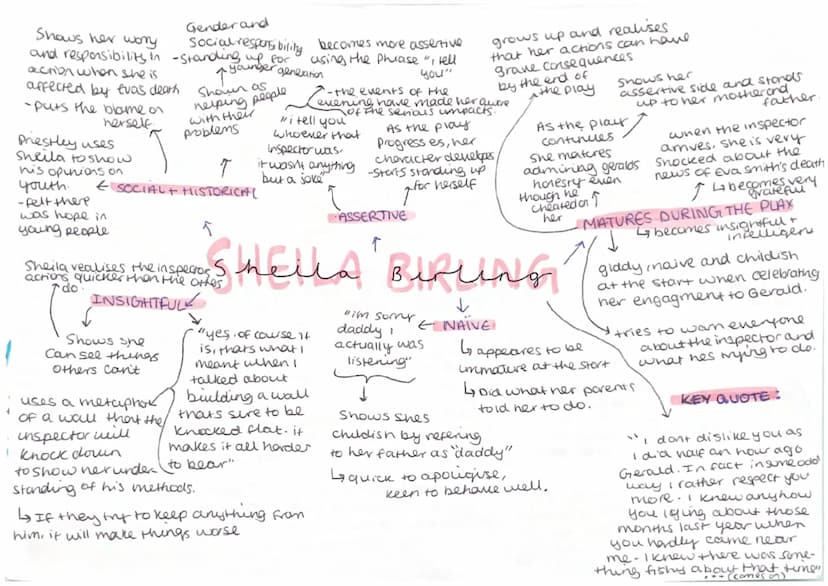 Shows her worry
and responsibility in
action when she is
affected by Evas death
- puts the blame on
herself
Gender and
Social responsibility
- Standing up for
younger generation
Shown as
helping people
with their
problems
Priestley uses
Sheila to show
his opinions on
youth.
- felt there
was hope in
young people
SOCIAL + HISTORICAL
becomes more assertive
using the phrase "i tell
you"
- the events of the
evening have made her aware
of the serious impacts.
"i tell you
whoever that
inspector was,
it wasnt anything
but a joke"
As the play
Progresses, her
character develops
- starts standing up
for herself
ASSERTIVE
grows up and realises
that her actions can have
grave consequences
by the end of
the play
Shows her
assertive side and stands
up to her mother and
father.
As the play
continues
She matures
admiring geralds
honesty even
though he
cheated on
her
when the inspector
arrives, she is very
shocked about the
news of Eva smith's death
↳ becomes very
MATURES DURING THE PLAY
↳ becomes insightful +
intelligent
giddy, naive and childish
at the start when celebrating
her engagment to Gerald.
tries to warn everyone
about the inspector and
what hes trying to do.
SHEILA BIRLING
Sheila Birling
Sheila realises the inspectors
actions quicker than the others
do.
INSIGHTFUL
Shows she
can see things
others cant
"yes, of course it
is, thats what I
meant when I
talked about
building a wall
thats sure to be
knocked flat. it
makes it all harder
to bear"
uses a metaphor
of a wall that the
inspector will
knock down
to show her under
standing of his methods.
↳ If they try to keep anything from
him, it will make things worse
NAÏVE
"im sorry
daddy i
actually was
listening"
Shows shes
childish by refering
to her father as "daddy"
↳ quick to apologise,
keen to behave well.
↳ appears to be
immature at the start
↳ Did what her parents
told her to do.
KEY QUOTE:
"I dont dislike you as
I did half an hour ago
Gerald. In fact in some odd
way I rather respect you
more. I knew anyhow
you lying about those
months last year when
you hardly came near
me - I knew there was some-
thing fishy about that time"